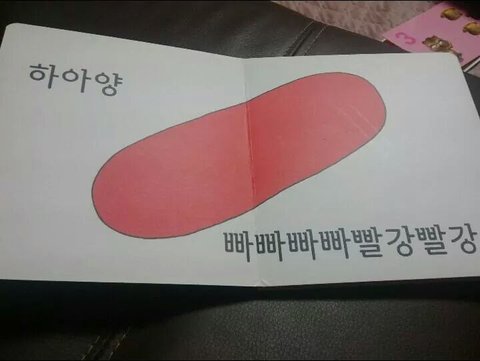 하아양
빠빠빠빠빨강빨강
3